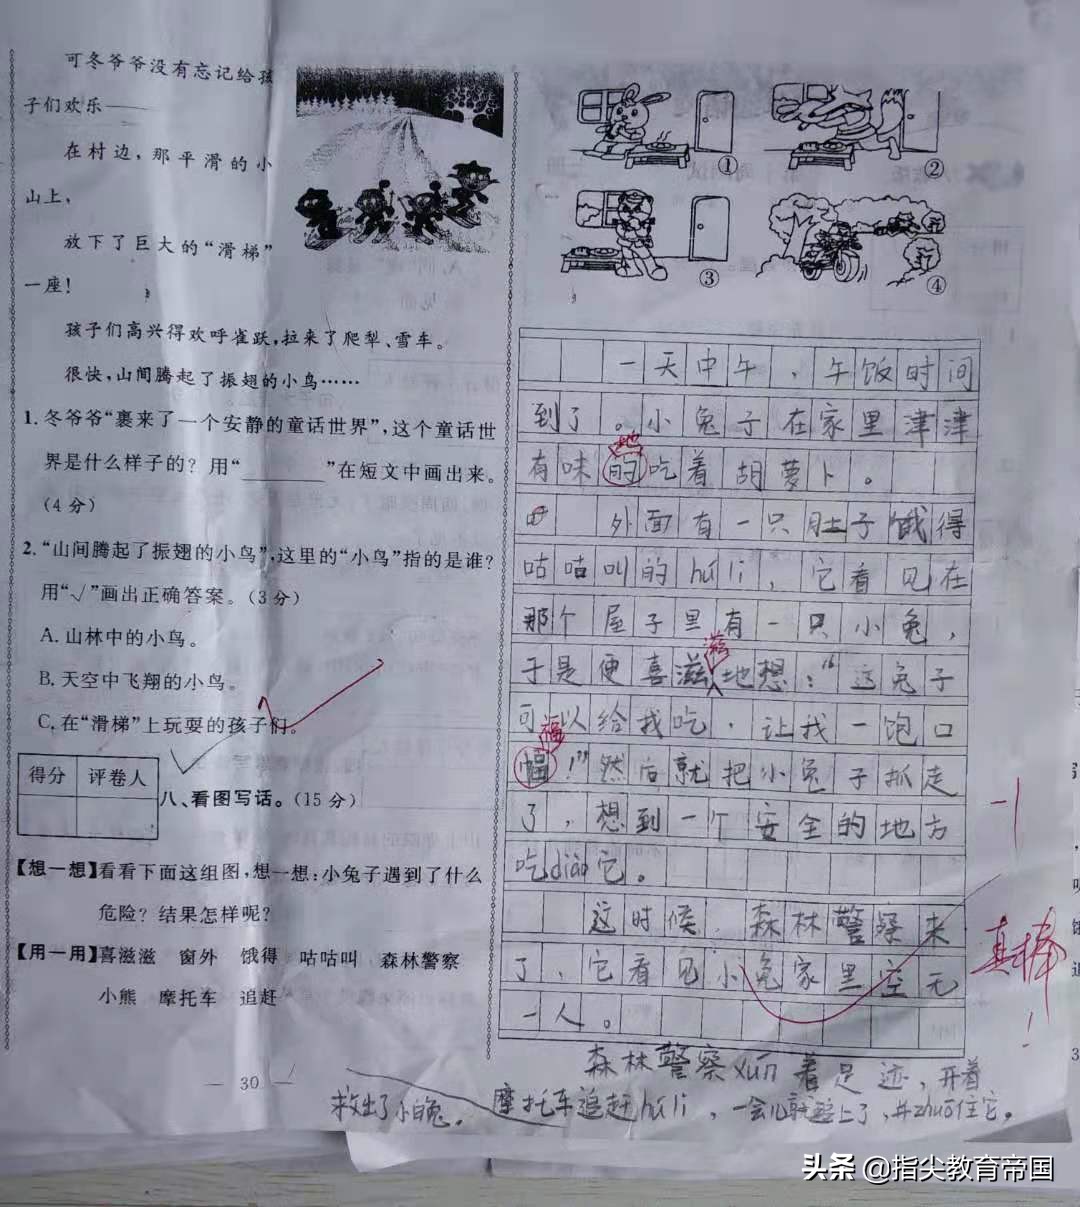 可冬爷爷没有忘记给孩
子们欢乐——
在村边，那平滑的小
山上，
放下了巨大的“滑梯”
一座！
孩子们高兴得欢呼雀跃，拉来了爬犁、雪车。
很快，山间腾起了振翅的小鸟……
1. 冬爷爷“裹来了一个安静的童话世界”，这个童话世
界是什么样子的？用“________”在短文中画出来。
（4分）
2. “山间腾起了振翅的小鸟”，这里的“小鸟”指的是谁？
用“√”画出正确答案。（3分）
A. 山林中的小鸟。
B. 天空中飞翔的小鸟。
C. 在“滑梯”上玩耍的孩子们。
得分 评卷人
八、看图写话。（15分）
【想一想】看看下面这组图，想一想：小兔子遇到了什么
危险？结果怎样呢？
【用一用】喜滋滋 窗外 饿得 咕咕叫 森林警察
小熊 摩托车 追赶
— 30 —
① ②
③ ④
一天中午，午饭时间
到了。小兔子在家里津津
地
有味的吃着胡萝卜。
外面有一只肚子饿得
咕咕叫的hú li，它看见在
那个屋子里有一只小兔，
滋
于是便喜滋地想：“这兔子
可以给我吃，让我一饱口
福
幅！”然后就把小兔子抓走
了，想到一个安全的地方
吃diào它。
这时候，森林警察来
了，它看见小兔家里空无
一人。
森林警察xún着足迹，开着
摩托车追赶hú li，一会儿就追上了，并zhuō住它。
救出了小兔。
-1
真棒！
头条 @指尖教育帝国